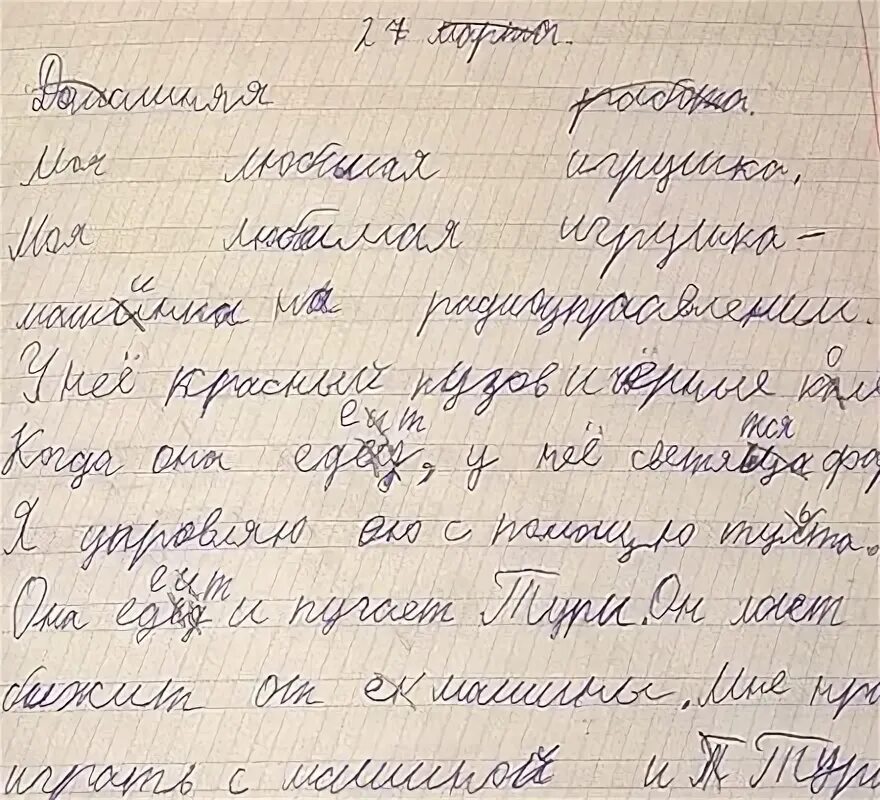 27 марта.
Домашняя работа.
Моя любимая игрушка.
Моя любимая игрушка –
машинка на радиоуправлении.
У неё красный кузов и чёрные кол
Когда она едет, у неё светятся фа
Я упровляю ею с помощю пульта.
Она едет и пугает Тури. Он лает
бижит от машины. Мне нра
играть с машиной и Тури